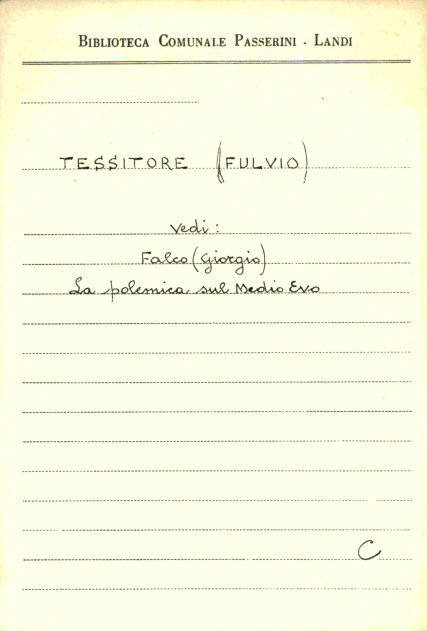 BIBLIOTECA COMUNALE PASSERINI - LANDI
TESSITORE (FULVIO)
Vedi:
Falco (Giorgio)
La polemica sul Medio Evo
C